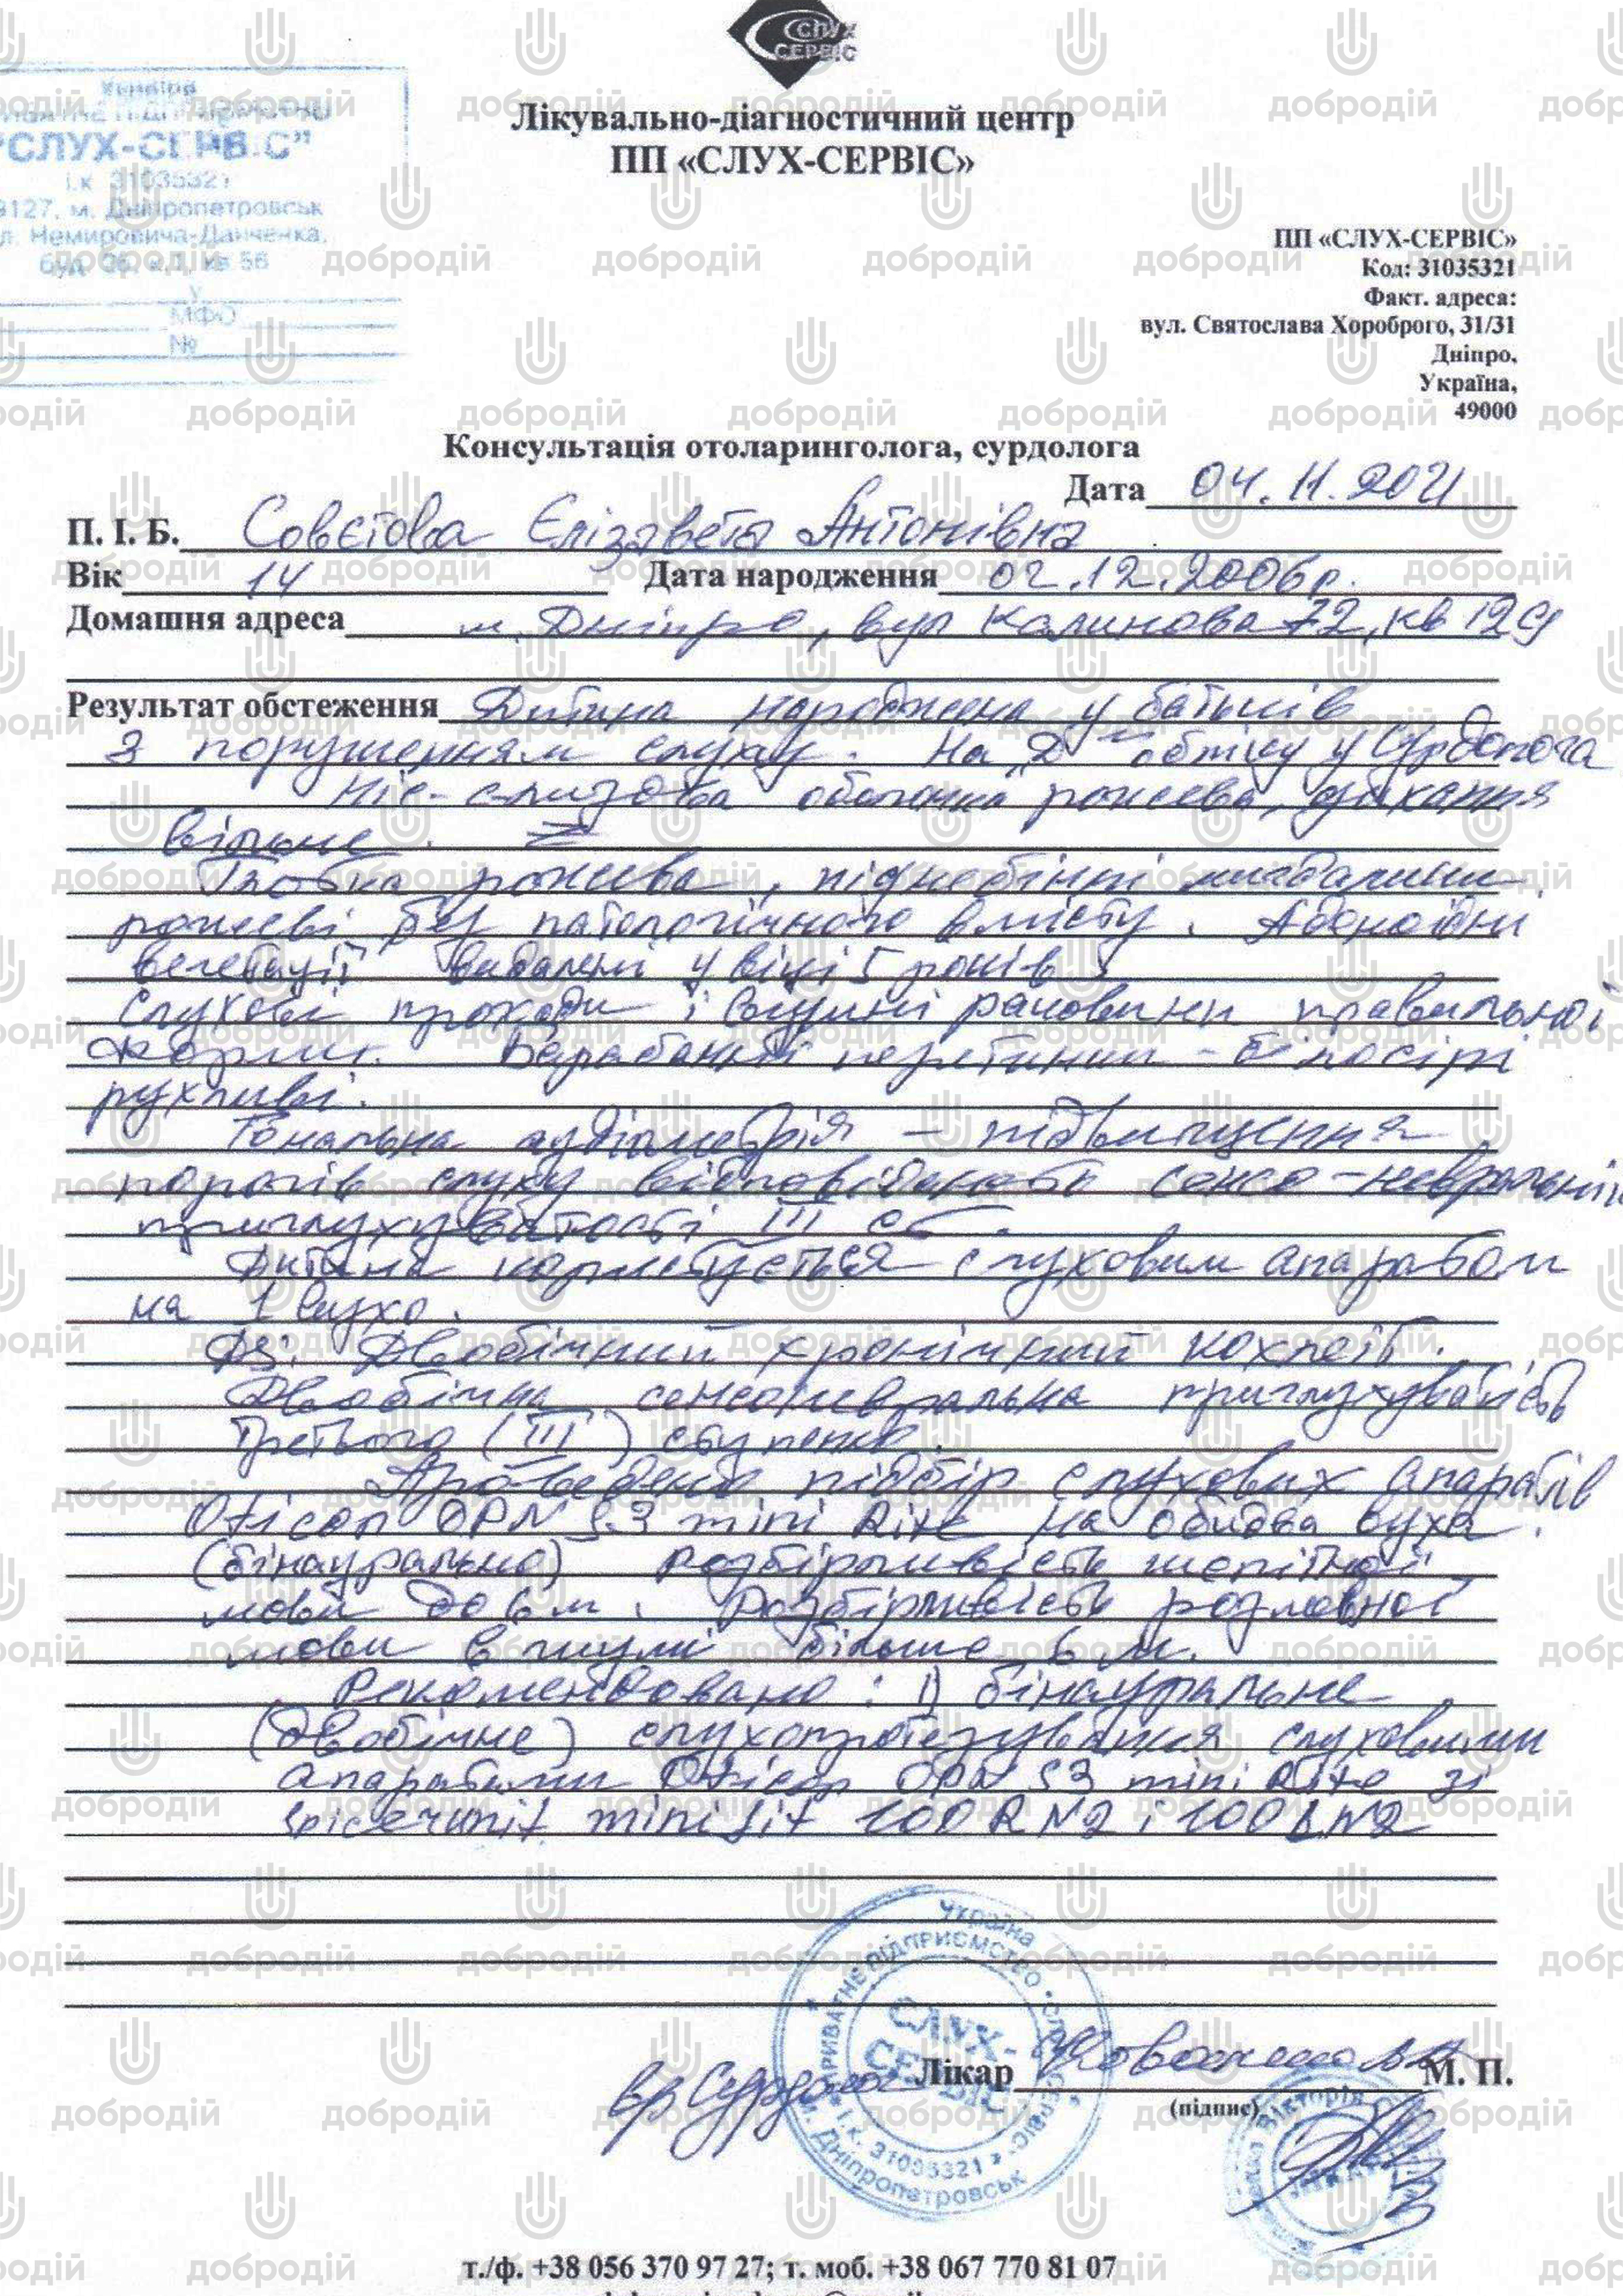 СЛУХ
СЕРВІС
Лікувально-діагностичний центр
ПП «СЛУХ-СЕРВІС»
Україна
"СЛУХ-СЕРВІС"
і.к. 31035321
м. Дніпропетровськ
Немировича-Данченка,
МФО
№
ПП «СЛУХ-СЕРВІС»
Код: 31035321
Факт. адреса:
вул. Святослава Хороброго, 31/31
Дніпро,
Україна,
49000
Консультація отоларинголога, сурдолога
Дата 04.11.2021
П. І. Б. Совєтова Єлізавета Антонівна
Вік 14 Дата народження 02.12.2006р.
Домашня адреса м. Дніпро, вул Калинова 72, кв 129
Результат обстеження Дитина народжена у батьків
з порушенням слуху. На "Д" обліку у Сурдолога
Ніс - слизова оболонка рожева, дихання
вільне.
Глотка рожева, піднебінні мигдалини
рожеві без патологічного вмісту. Аденоїдні
вегетації видалені у віці 5 років.
Слухові проходи і вушні раковини правильної
форми. Барабанні перетинки - білосірі
рухливі.
Тональна аудіометрія - підвищення
порогів слуху відповідають сенсо-невральній
приглухуватості III ст.
Дитина користується слуховим апаратом
на 1 вухо.
Дз: Двобічний хронічний кохлеїт.
Двобічна сенсоневральна приглухуватість
Третього (III) ступеню.
Проведено підбір слухових апаратів
Oticon OPN S3 mini Rite на обидва вуха
(бінаурально) Розбірливість шепітної
мови до 6 м. Розбірливість розмовної
мови в шумі більше 6 м.
Рекомендовано: 1) бінауральне
(двобічне) слухопротезування слуховими
апаратами Oticon OPN S3 mini Rite зі
minifit 100 R N2 і 100 L N2
вр Сурдолог Лікар М. П.
(підпис)
Україна
ПРИВАТНЕ ПІДПРИЄМСТВО "СЛУХ-СЕРВІС"
СЛУХ-
СЕРВІС
і.к. 31035321
м. Дніпропетровськ
Вікторія
т./ф. +38 056 370 97 27; т. моб. +38 067 770 81 07
добродій